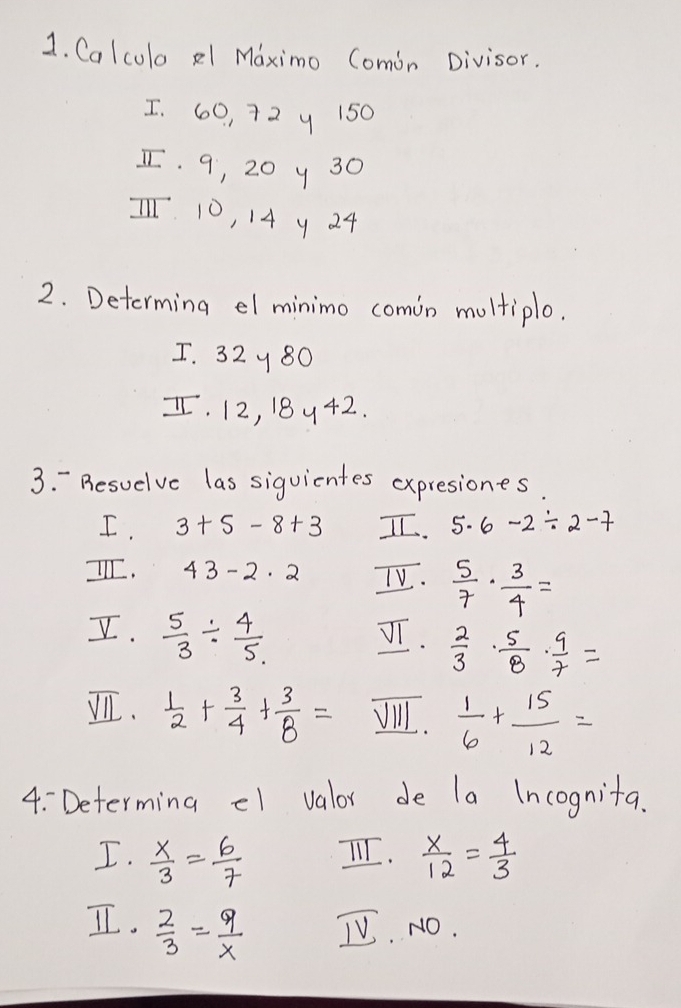 1. Calcula el Máximo Común Divisor.
I. 60, 72 y 150
II. 9, 20 y 30
III 10, 14 y 24
2. Determina el minimo común multiplo.
I. 32 y 80
II. 12, 18 y 42.
3.- Resuelve las siguientes expresiones.
I. 3+5-8+3 II. 5·6-2÷2-7
III. 43-2·2 IV. 5/7 · 3/4 =
V. 5/3 ÷ 4/5. VI. 2/3 · 5/8 · 9/7 =
VII. 1/2 + 3/4 + 3/8 = VIII. 1/6 + 15/12 =
4.- Determina el valor de la Incognita.
I. x/3 = 6/7 III. x/12 = 4/3
II. 2/3 = 9/x IV. NO.